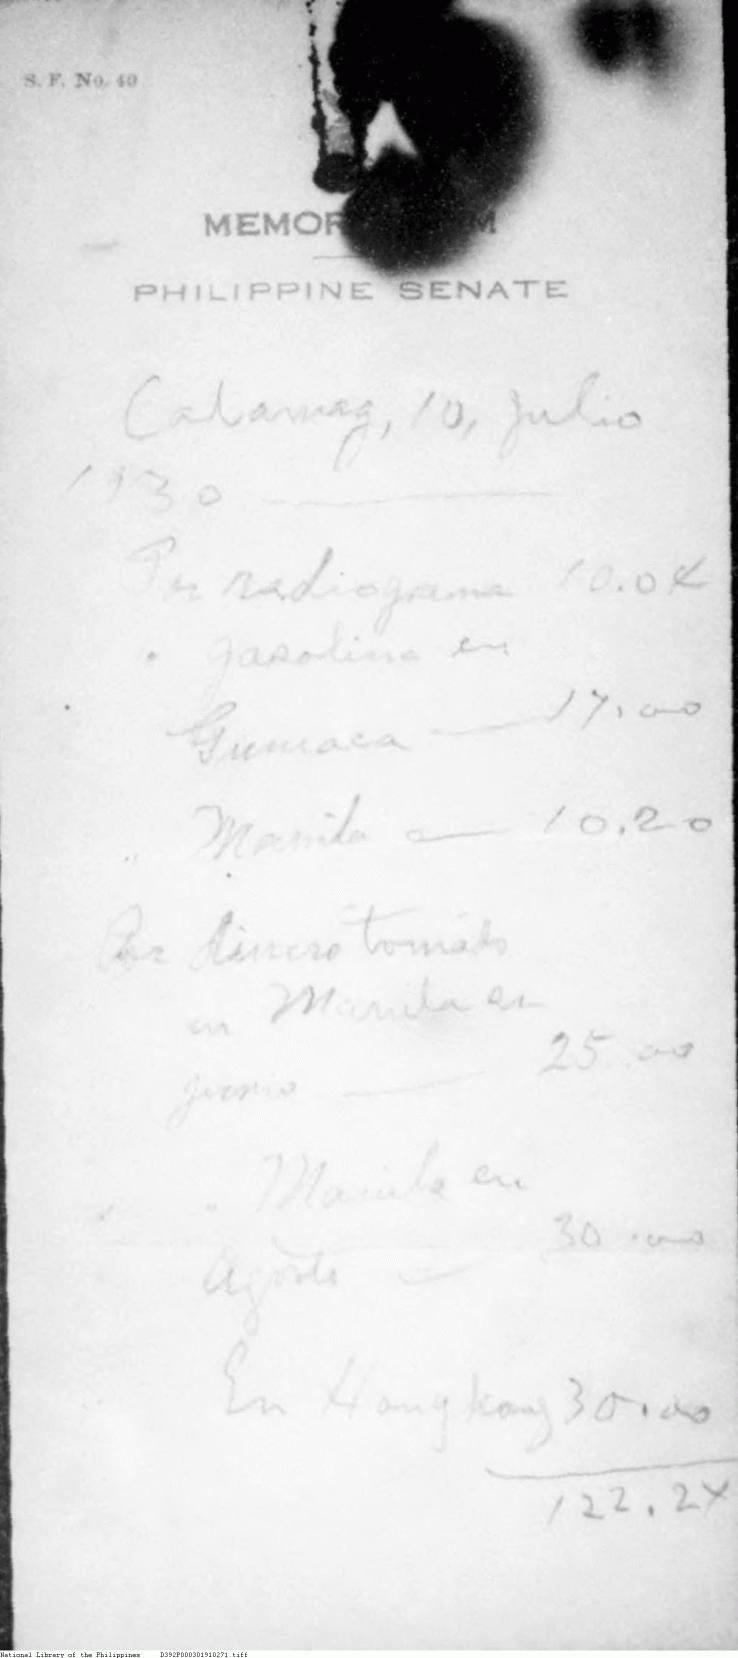 S. F. No. 40
MEMORANDUM
PHILIPPINE SENATE
Calauag, 10, Julio
1930
Por radiograma 10.04
" gasolina en
Gumaca — 17.00
" Manila — 10.20
Por dinero tomado
en Manila en
junio — 25.00
" " Manila en
Agosto — 30.00
En Hongkong 30.00
122.24
National Library of the Philippines D392P000301910271.tiff